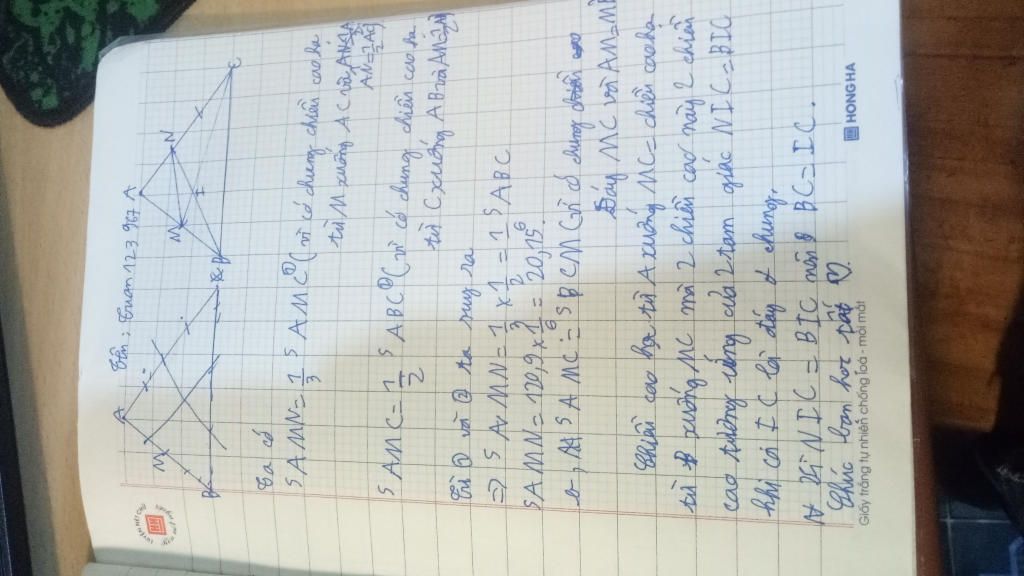 Tên: Tuan123 967
A
M
B
C
A
N
M
I
B
C
Ta có
S AMN = 1/3 S AMC① (vì có chung chiều cao hạ
từ M xuống AC và AN = 1/3 AC)
S AMC = 1/2 S ABC② (vì có chung chiều cao hạ
từ C xuống AB và AM =
Từ ① và ② ta suy ra
=> S AMN = 1/3 x 1/2 = 1/6 S ABC
S AMN = 120,9 x 1/6 = 20,15
S AMC = S BCM vì có chung
Đáy MC và AM = MB
Chiều cao hạ từ A xuống MC = chiều cao hạ
từ B xuống MC mà 2 chiều cao này 2 chiều
cao tương ứng của 2 tam giác NIC = BIC
khi có IC là đáy chung.
Vì NIC = BIC nên BC = IC.
Chúc bạn học tốt ♡.
Giấy trắng tự nhiên chống loá - mỏi mắt
HONGHA
LUYỆN NÉT CHỮ